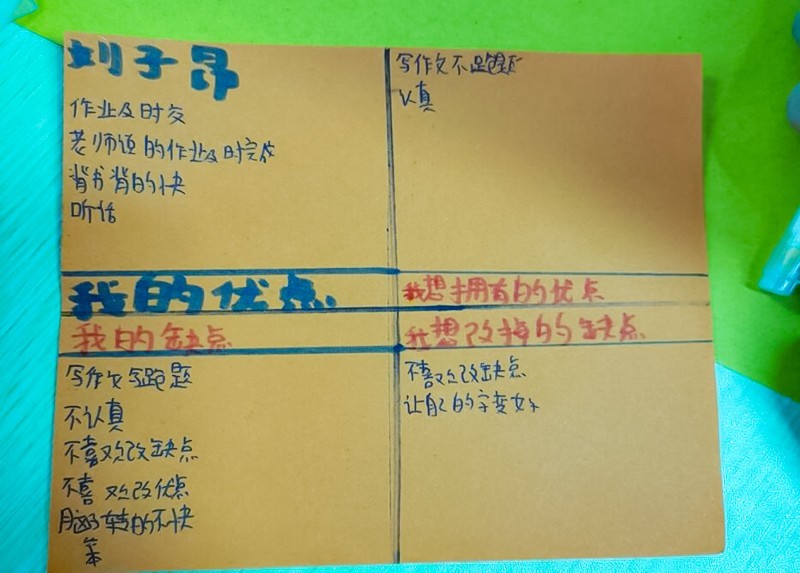 刘子昂
作业及时交
老师须的作业及时完成
背书背的快
听话
我的优点
写作文不跑题
认真
我想拥有的优点
我的缺点
写作文写跑题
不认真
不喜欢改缺点
不喜欢改优点
脑子转的不快
笨
我想改掉的缺点
不喜欢改缺点
让自己的字变好